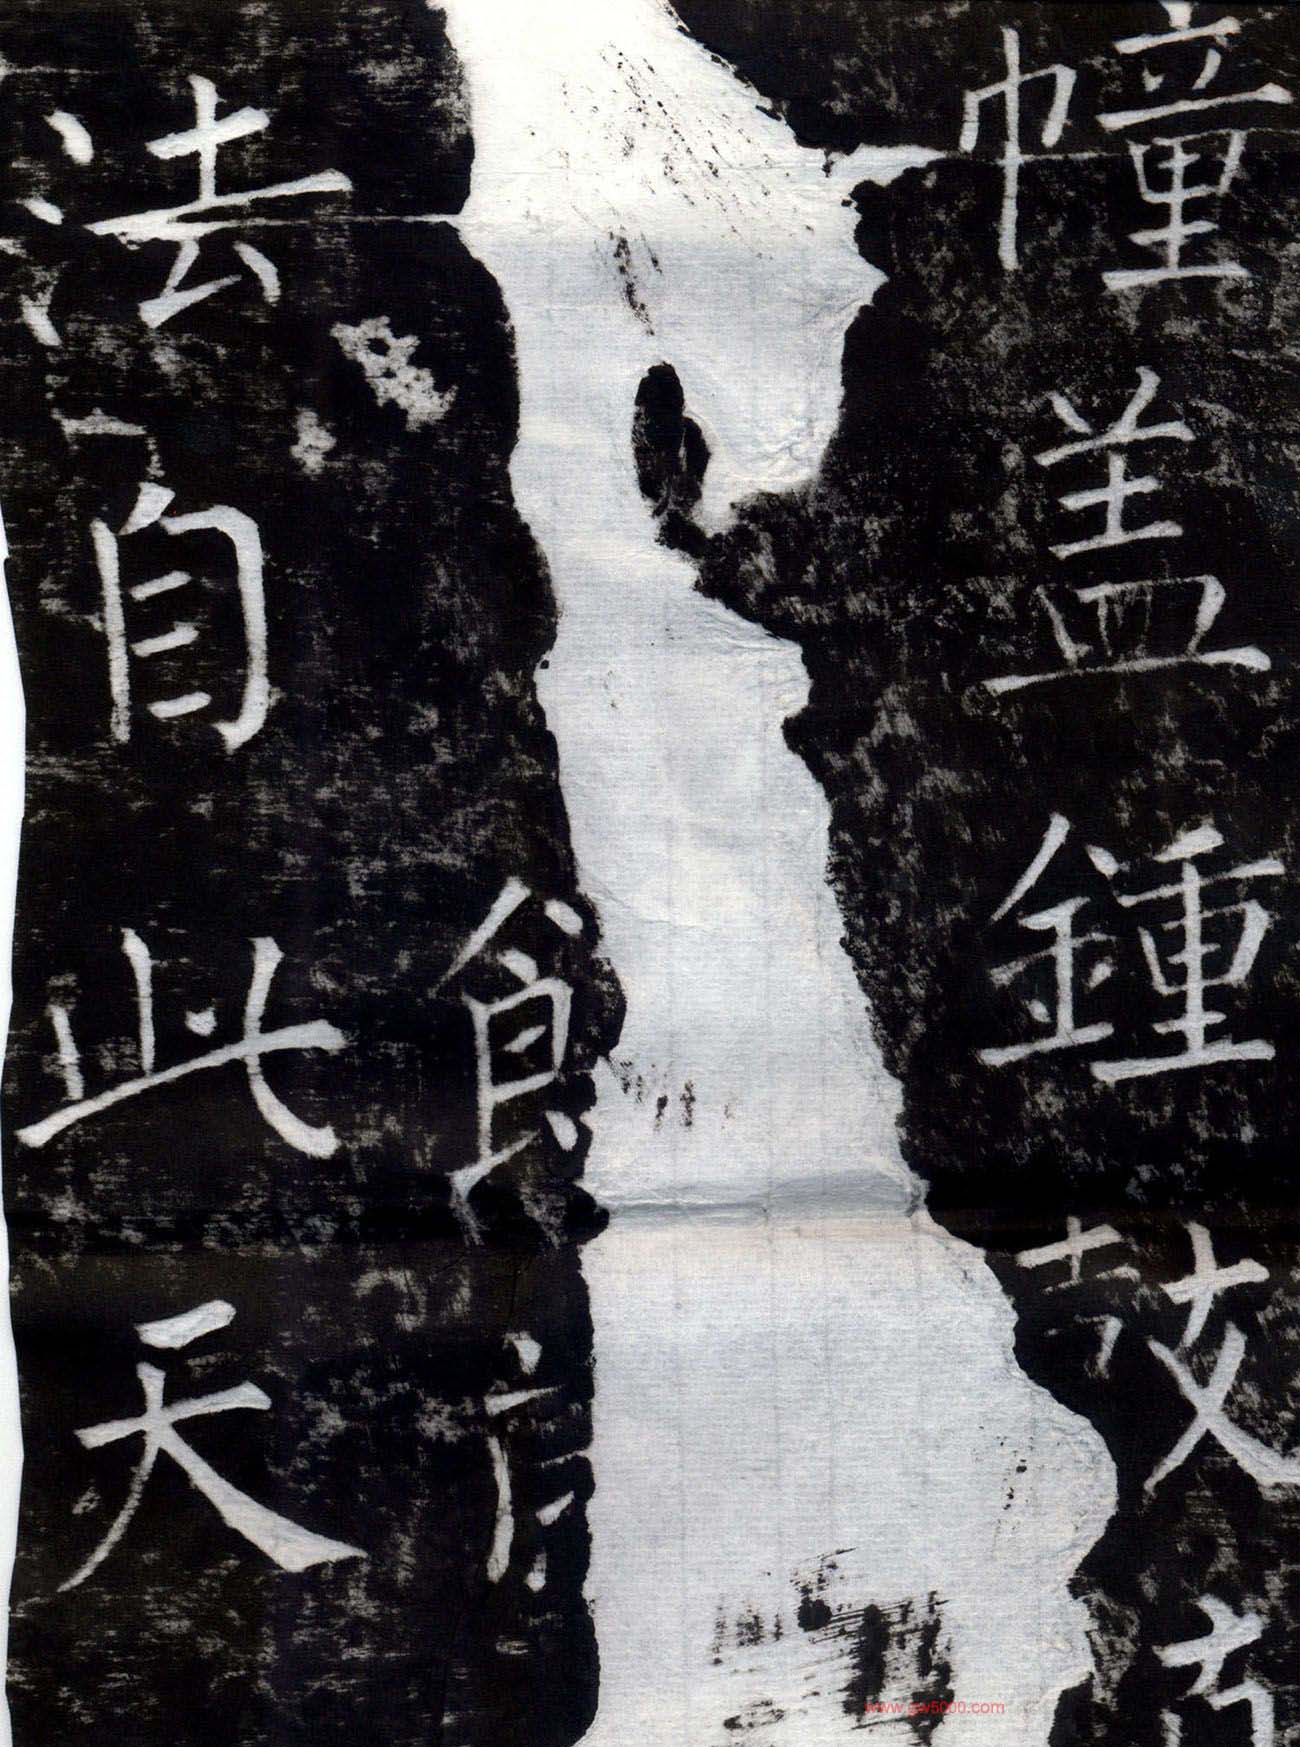 幢盖鍾鼓
食
法自此天
www.gw5000.com